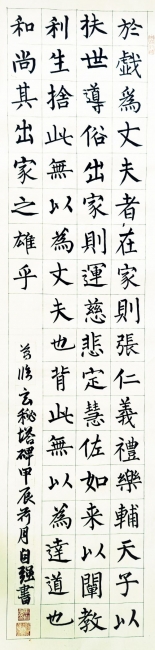 於戲為丈夫者在家則張仁義禮樂輔天子以
扶世導俗出家則運慈悲定慧佐如来以闡教
利生捨此無以為丈夫也背此無以為達道也
和尚其出家之雄乎
节临玄秘塔碑甲辰荷月自强書